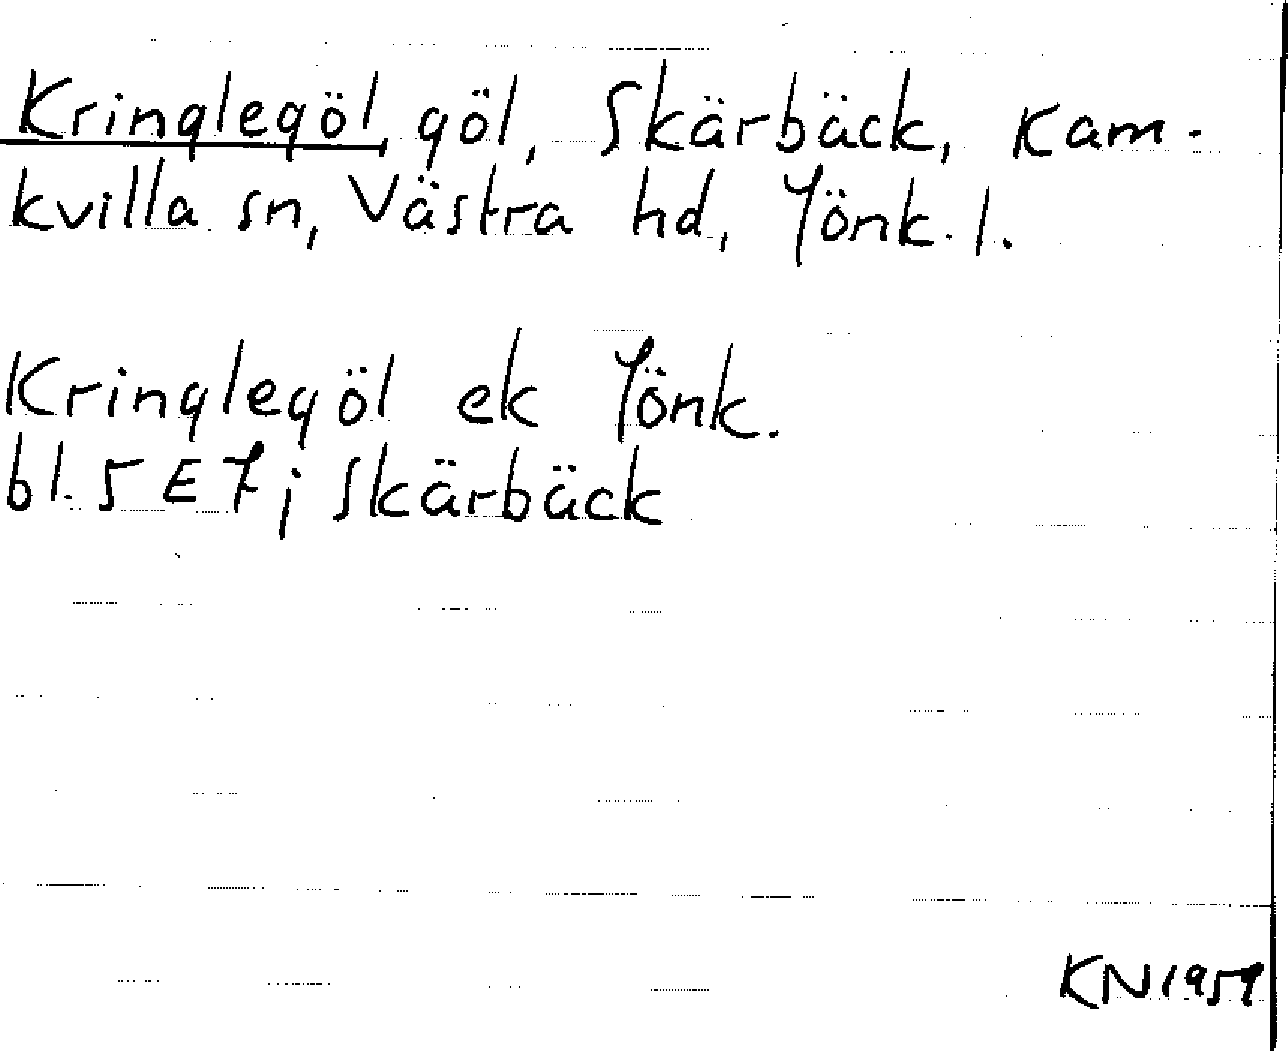 Kringlegöl, göl, Skärbäck, Karn-
kvilla sn, Västra hd, Jönk. l.
Kringlegöl ek Jönk.
bl. 5 E 7; Skärbäck
KN 1959